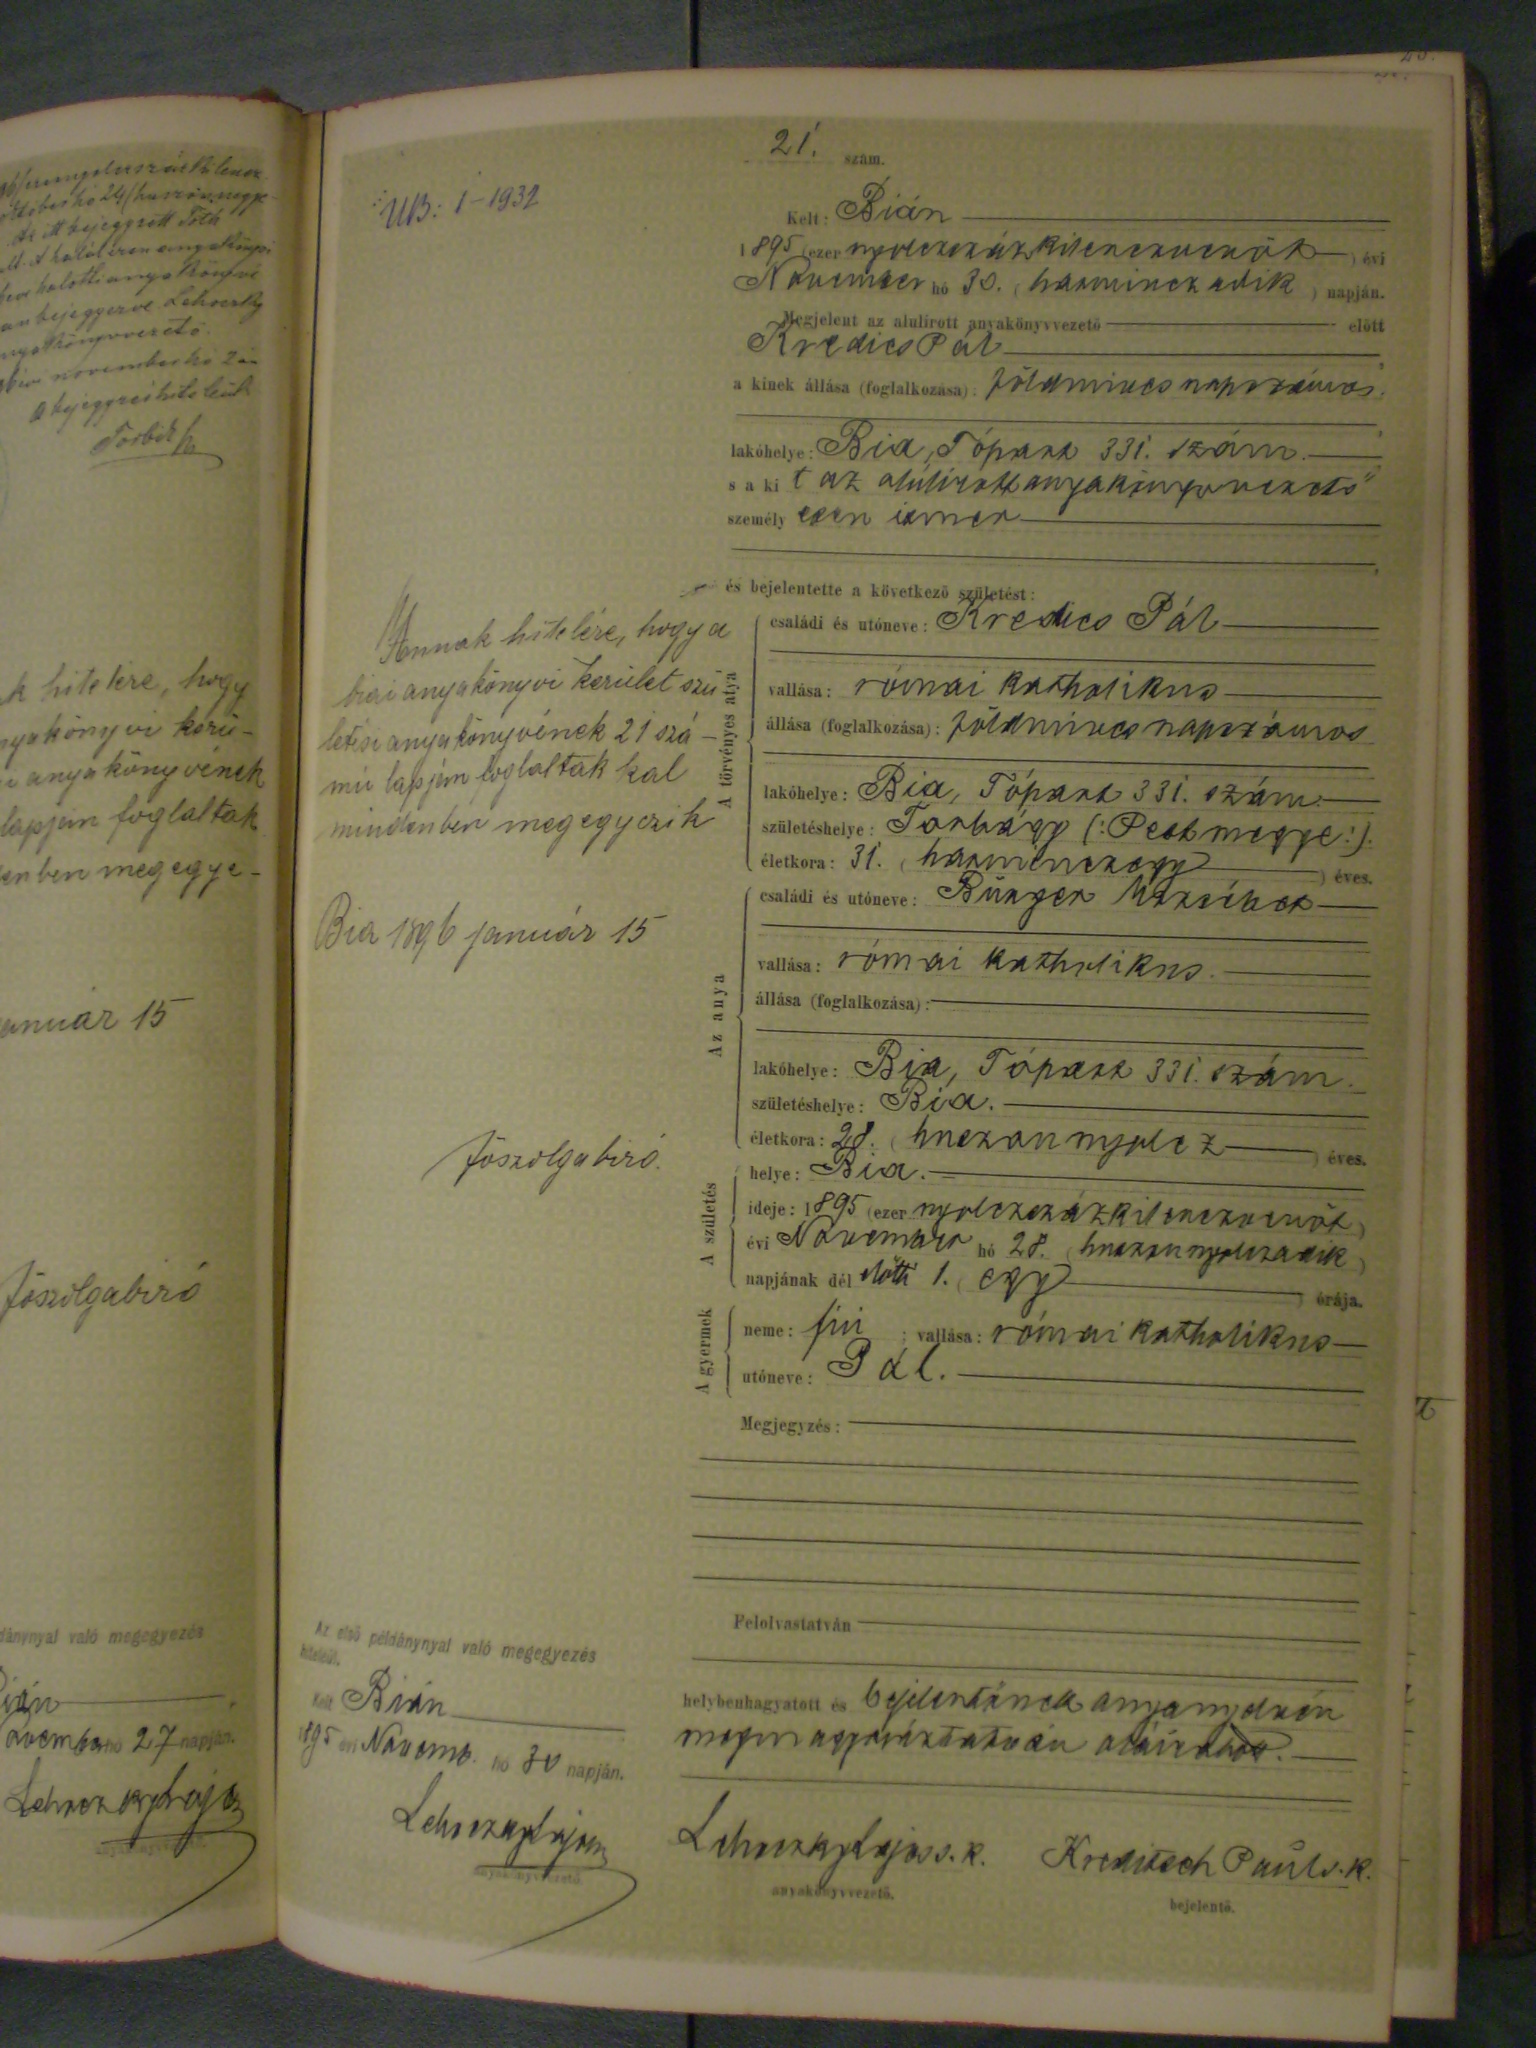 21. szám.
UB: 1-1932
Kelt: Bián
1895 (ezer nyolczszázkilenczvenöt) évi
November hó 30. (harminczadik) napján.
Megjelent az alulirott anyakönyvvezető előtt
Kredics Pál
a kinek állása (foglalkozása): földmives napszámos.
lakóhelye: Bia, Tópart 331. szám.
s a kit az alulirott anyakönyvvezető
személyesen ismer
és bejelentette a következő születést:
A törvényes atya
családi és utóneve: Kredics Pál
vallása: római katholikus
állása (foglalkozása): földmives napszámos
lakóhelye: Bia, Tópart 331. szám.
születéshelye: Torbágy (: Pest megye :).
életkora: 31. (harminczegy) éves.
Az anya
családi és utóneve: Bürger Erzsébet
vallása: római katholikus.
állása (foglalkozása):
lakóhelye: Bia, Tópart 331. szám.
születéshelye: Bia.
életkora: 28. (huszonnyolcz) éves.
A születés
helye: Bia.
ideje: 1895 (ezer nyolczszázkilenczvenöt)
évi November hó 28. (huszonnyolczadik)
napjának dél előtti 1. (egy) órája.
A gyermek
neme: fiú; vallása: római katholikus
utóneve: Pál.
Megjegyzés:
Felolvastatván
helybenhagyatott és bejelentőnek anyanyelvén
megmagyaráztatván aláiratott.
Lehoczky Lajos s. k.
anyakönyvvezető.
Kreditsch Paul s. k.
bejelentő.
Annak hitelére, hogy a
biai anyakönyvi kerület szü
letési anyakönyvének 21 szá-
mú lapján foglaltakkal
mindenben megegyezik
Bia 1896 január 15
főszolgabiró.
Az első példánynyal való megegyezés
hiteléül.
Kelt Bián
1895 évi Novemb. hó 30 napján.
Lehoczky Lajos
anyakönyvvezető.
október hó 24 (huszonnegye
Az itt bejegyzett Tóth
halotti anyakönyvé
an bejegyezve Lehoczky
nyakönyvvezető.
évi november hó 2 án
A bejegyzés hiteléül
k hitelére, hogy
nyakönyvi kerü-
i anyakönyvének
lapján foglaltak
enben megegye-
anuár 15
főszolgabiró
dánynyal való megegyezés
ián
ovember hó 27 napján.
Lehoczky Lajos
anyakönyvvezető.